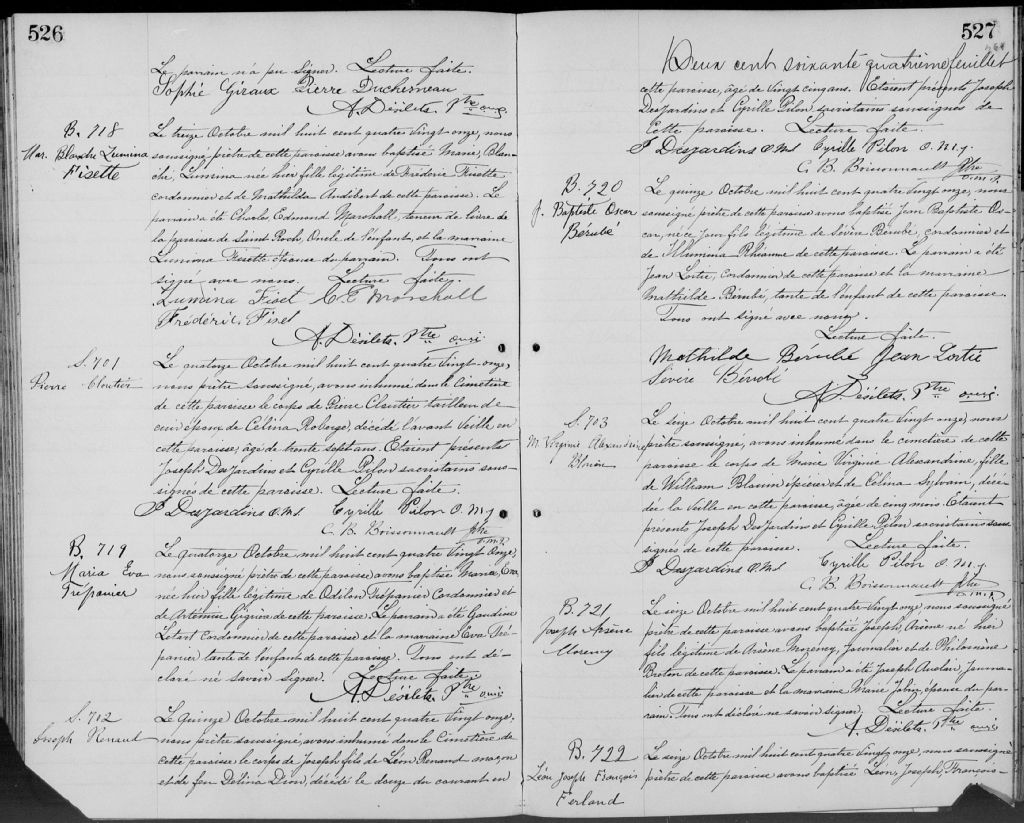 526
Le parrain n'a pu signer. Lecture faite.
Sophie Giraux Pierre Duchesneau
A. Désilets. Ptre omi
B. 718
Mar. Blanche Lumina
Fisette
Le treize Octobre mil huit cent quatre vingt onze, nous
soussigné prêtre de cette paroisse avons baptisé Marie, Blan-
che, Lumina née hier fille légitime de Fréderic Fisette
cordonnier et de Mathilda Audibert de cette paroisse. Le
parrain a été Charles, Edmond Marshall, teneur de livre de
la paroisse de Saint Roch, Oncle de l'enfant, et la marraine
Lumina Fisette épouse du parrain. Tous ont
signé avec nous. Lecture faite.
Lumina Fiset C E Marshall
Frédéric Fiset
A. Désilets. Ptre omi
S. 701
Pierre Cloutier
Le quatorze Octobre mil huit cent quatre vingt onze,
nous prêtre soussigné, avons inhumé dans le Cimetière
de cette paroisse le corps de Pierre Cloutier tailleur de
cuir époux de Celina Roberge, décédé l'avant veille en
cette paroisse, âgé de trente sept ans. Etaient présents
Joseph DesJardins et Cyrille Pilon sacristains sous-
signés de cette paroisse. Lecture faite.
J Desjardins O.M.I. Cyrille Pilon O. M. J
C. B. Boissonnault ptre
o.m.I.
B. 719
Maria Eva
Trépanier
Le quatorze Octobre mil huit cent quatre vingt onze,
nous soussigné prêtre de cette paroisse avons baptisé Maria, Eva
née hier fille légitime de Odilon Trépanier Cordonnier et
de Artémise Gignon de cette paroisse. Le parrain a été Gaudiose
Letart Cordonnier de cette paroisse et la marraine Eva Tré-
panier tante de l'enfant de cette paroisse. Tous ont dé-
claré ne savoir signer. Lecture faite.
A. Désilets. Ptre omi
S. 702
Joseph Renaud
Le Quinze Octobre mil huit cent quatre vingt onze,
nous prêtre soussigné, avons inhumé dans le Cimetière de
cette paroisse le corps de Joseph fils de Léon Renaud maçon
et de feu Delina Dion, décédé le douze du courant en
527
264
Deux cent soixante quatrième feuillet
cette paroisse, âgé de vingt cinq ans. Etaient présents Joseph
DesJardins et Cyrille Pilon sacristains soussignés de
cette paroisse. Lecture faite.
J Desjardins O.M.I Cyrille Pilon O. M. J.
C. B. Boissonnault ptre
o.m.I.
B. 720
J. Baptiste Oscar
Bérubé
Le quinze Octobre mil huit cent quatre vingt onze, nous
soussigné prêtre de cette paroisse avons baptisé Jean Baptiste Os-
car, né ce jour fils légitime de Sévère Bérubé, cordonnier et
de Illumina Rhéaume de cette paroisse. Le parrain a été
Jean Lortie, Cordonnier de cette paroisse et la marraine
Mathilde Bérubé, tante de l'enfant de cette paroisse.
Tous ont signé avec nous.
Lecture faite.
Mathilde Bérubé Jean Lortie
Sévère Bérubé
A. Désilets. Ptre omi.
S. 703
M. Virginie Alexandrine
Blouin
Le seize Octobre mil huit cent quatre vingt onze, nous
prêtre soussigné, avons inhumé dans le cimetière de cette
paroisse le corps de Marie Virginie Alexandrine, fille
de William Blouin épicier et de Célina Sylvain, décé-
dée la veille en cette paroisse, âgée de cinq mois. Etaient
présents Joseph DesJardins et Cyrille Pilon sacristains sous-
signés de cette paroisse. Lecture faite.
J Desjardins O.M.I Cyrille Pilon O. M. J
C. B. Boissonnault ptre
o.m.I.
B. 721
Joseph Arsène
Morency
Le seize Octobre mil huit cent quatre-vingt onze, nous soussigné
prêtre de cette paroisse avons baptisé Joseph, Arsène né hier
fils légitime de Arsène Morency, Journalier et de Philomène
Breton de cette paroisse. Le parrain a été Joseph Auclair, Journa-
lier de cette paroisse et la marraine Marie Jobin, épouse du par-
rain. Tous ont déclaré ne savoir signer. Lecture faite.
A. Désilets. Ptre omi
B. 722
Léon Joseph François
Ferland
Le seize Octobre mil huit cent quatre vingt onze, nous soussigné
prêtre de cette paroisse avons baptisé Léon, Joseph, François-